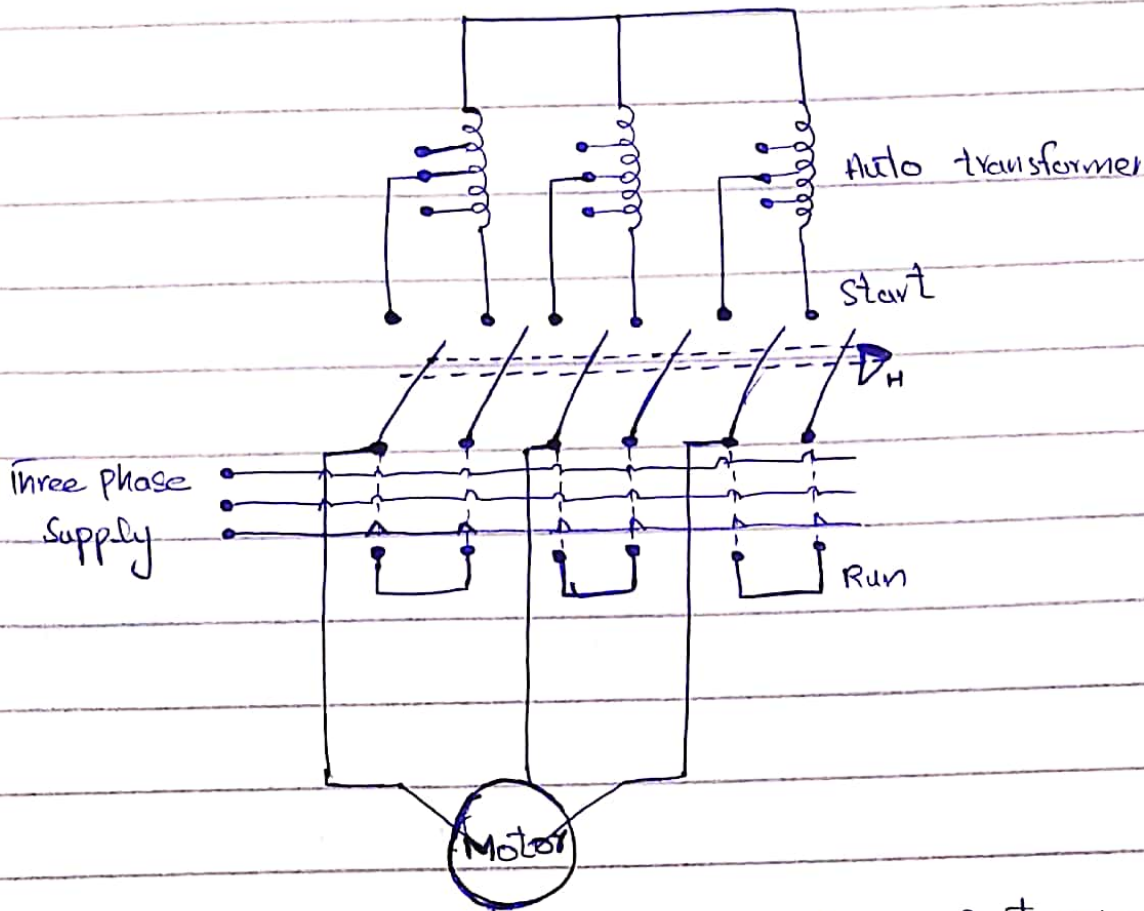 Auto transformer
Start
H
Three phase
Supply
Run
Motor